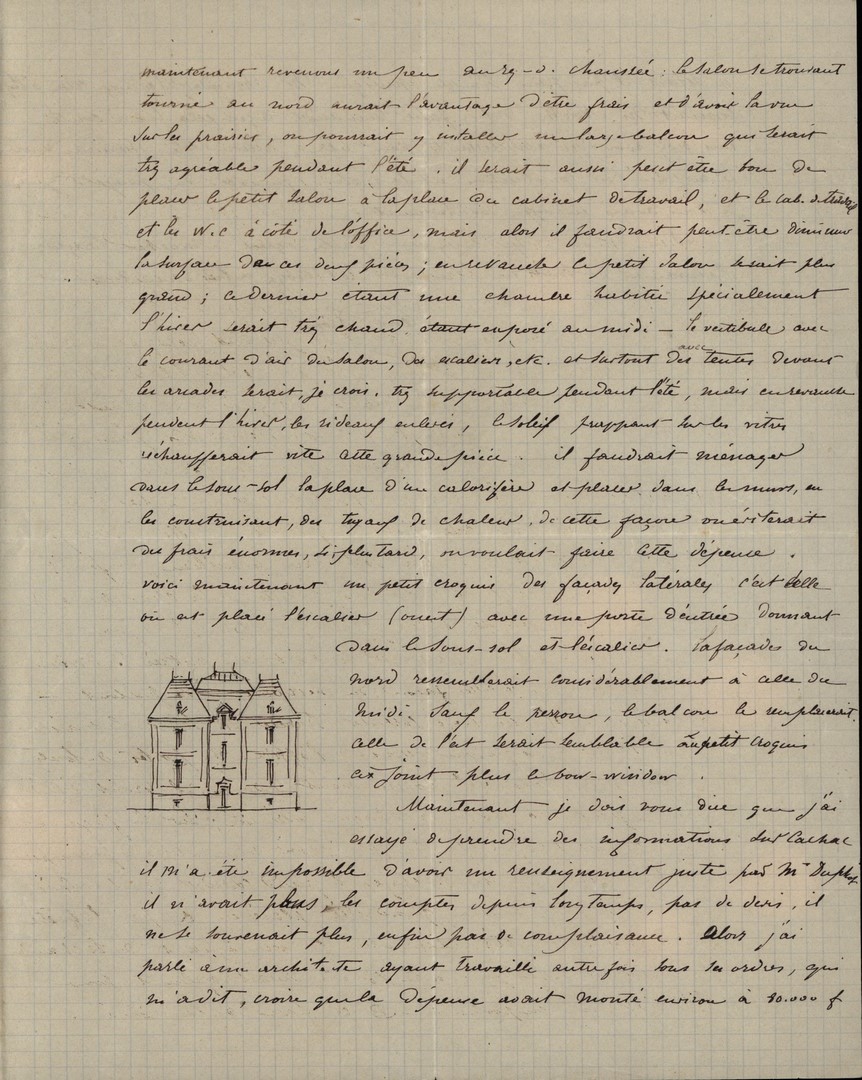 maintenant revenons un peu au rz-d. chaussée : le salon se trouvant
tourné au nord aurait l'avantage d'être frais et d'avoir la vue
sur les prairies, on pourrait y installer un large balcon qui serait
très agréable pendant l'été. il serait aussi peut être bon de
placer le petit salon à la place du cabinet de travail, et le cab. de travail
et les W.C à côté de l'office, mais alors il faudrait peut-être diminuer
la surface de ces deux pièces ; en revanche le petit salon serait plus
grand ; ce dernier étant une chambre habitée spécialement
l'hiver serait très chaud étant exposé au midi – le vestibule avec
le courant d'air du salon, des escaliers, etc. et surtout avec des tentes devant
les arcades serait, je crois, très supportable pendant l'été, mais en revanche
pendent l'hiver, les rideaux enlevés, le soleil frappant sur les vitres
réchaufferait vite cette grande pièce. il faudrait ménager
dans le sous-sol la place d'un calorifère et placer dans les murs, en
les construisant, des tuyaux de chaleur, de cette façon on éviterait
des frais énormes, si plus tard, on voulait faire cette dépense.
voici maintenant un petit croquis des façades latérales c'est celle
où est placé l'escalier (ouest) avec une porte d'entrée donnant
dans le sous-sol et l'escalier. la façades du
nord ressemblerait considérablement à celle du
midi. Sauf le perron, le balcon le remplacerait.
celle de l'est serait semblable au petit croquis
ci-joint plus le bow-window.
Maintenant je dois vous dire que j'ai
essayé de prendre des informations sur Cachac
il m'a été impossible d'avoir un renseignement juste par Mr
il n'avait plus, les comptes depuis longtemps, pas de devis, il
ne se souvenait plus, enfin pas de complaisance. Alors j'ai
parlé à un architecte ayant travaillé autre fois sous ses ordres, qui
m'a dit, croire que la dépense avait monté environ à 80.000 f